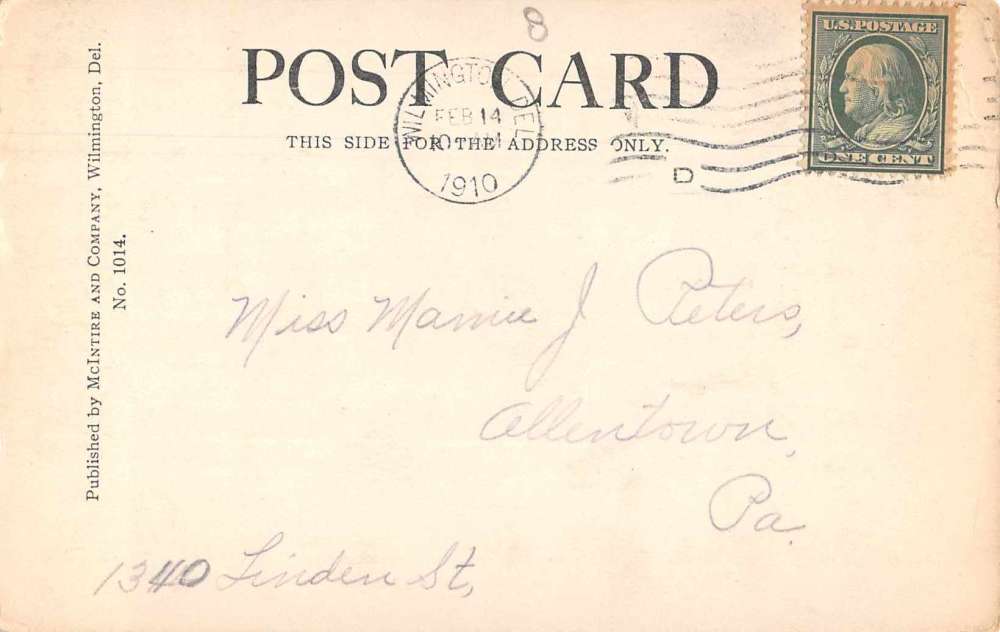 8
U.S. POSTAGE
POST CARD
WILMINGTON, DEL.
FEB 14
10 AM
1910
THIS SIDE FOR THE ADDRESS ONLY.
D
ONE CENT
Published by MCINTIRE AND COMPANY, Wilmington, Del.
No. 1014.
Miss Mamie J Peters,
Allentown,
Pa.
1340 Linden St,